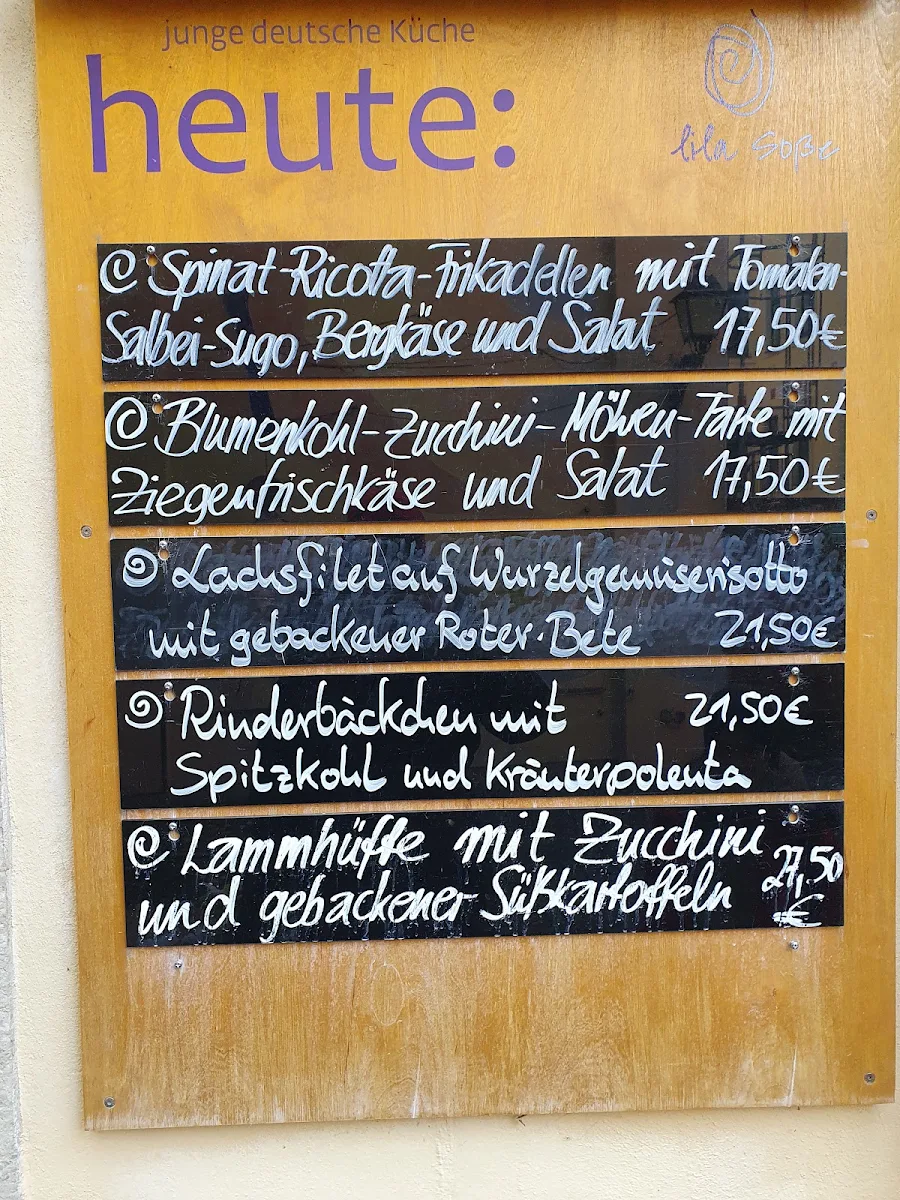 junge deutsche Küche
heute:
lila Soße
Spinat-Ricotta-Frikadellen mit Tomaten-
Salbei-Sugo, Bergkäse und Salat 17,50€
Blumenkohl-Zucchini-Möhren-Tarte mit
Ziegenfrischkäse und Salat 17,50€
Lachsfilet auf Wurzelgemüserisotto
mit gebackener Roter Bete 21,50€
Rinderbäckchen mit 21,50€
Spitzkohl und Kräuterpolenta
Lammhüfte mit Zucchini
und gebackener Süßkartoffeln 27,50
€